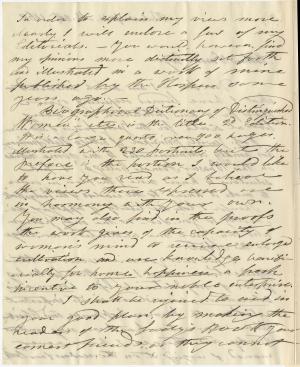 In order to explain my views more
clearly I will enclose a few of my
"Editorials. — You would, however, find
my opinions more distinctly set forth
and illustrated in a work of mine
published by the Harpers some
years ago. —
Biographical Dictionary of Distinguished
Women, etc is the title 2d Edition.
over 900 pages.
illustrated with 230 portraits, but the
preface is the portion I would like
to have you read as I believe
the views there expressed are
in harmony with your own.
You may also find in the proofs
the work gives of the capacity of
woman's mind to receive enlarged
cultivation and use knowledge benefi-
cially for home happiness a fresh
incentive to your noble enterprise.
I shall be rejoiced to aid in
your good plan, by making the
readers of the Lady's Book your
earnest friends as they cannot